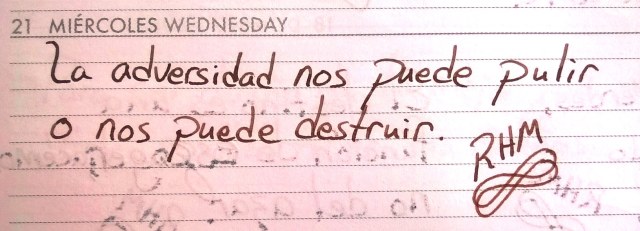 21 MIÉRCOLES WEDNESDAY
La adversidad nos puede pulir
o nos puede destruir.
RHM